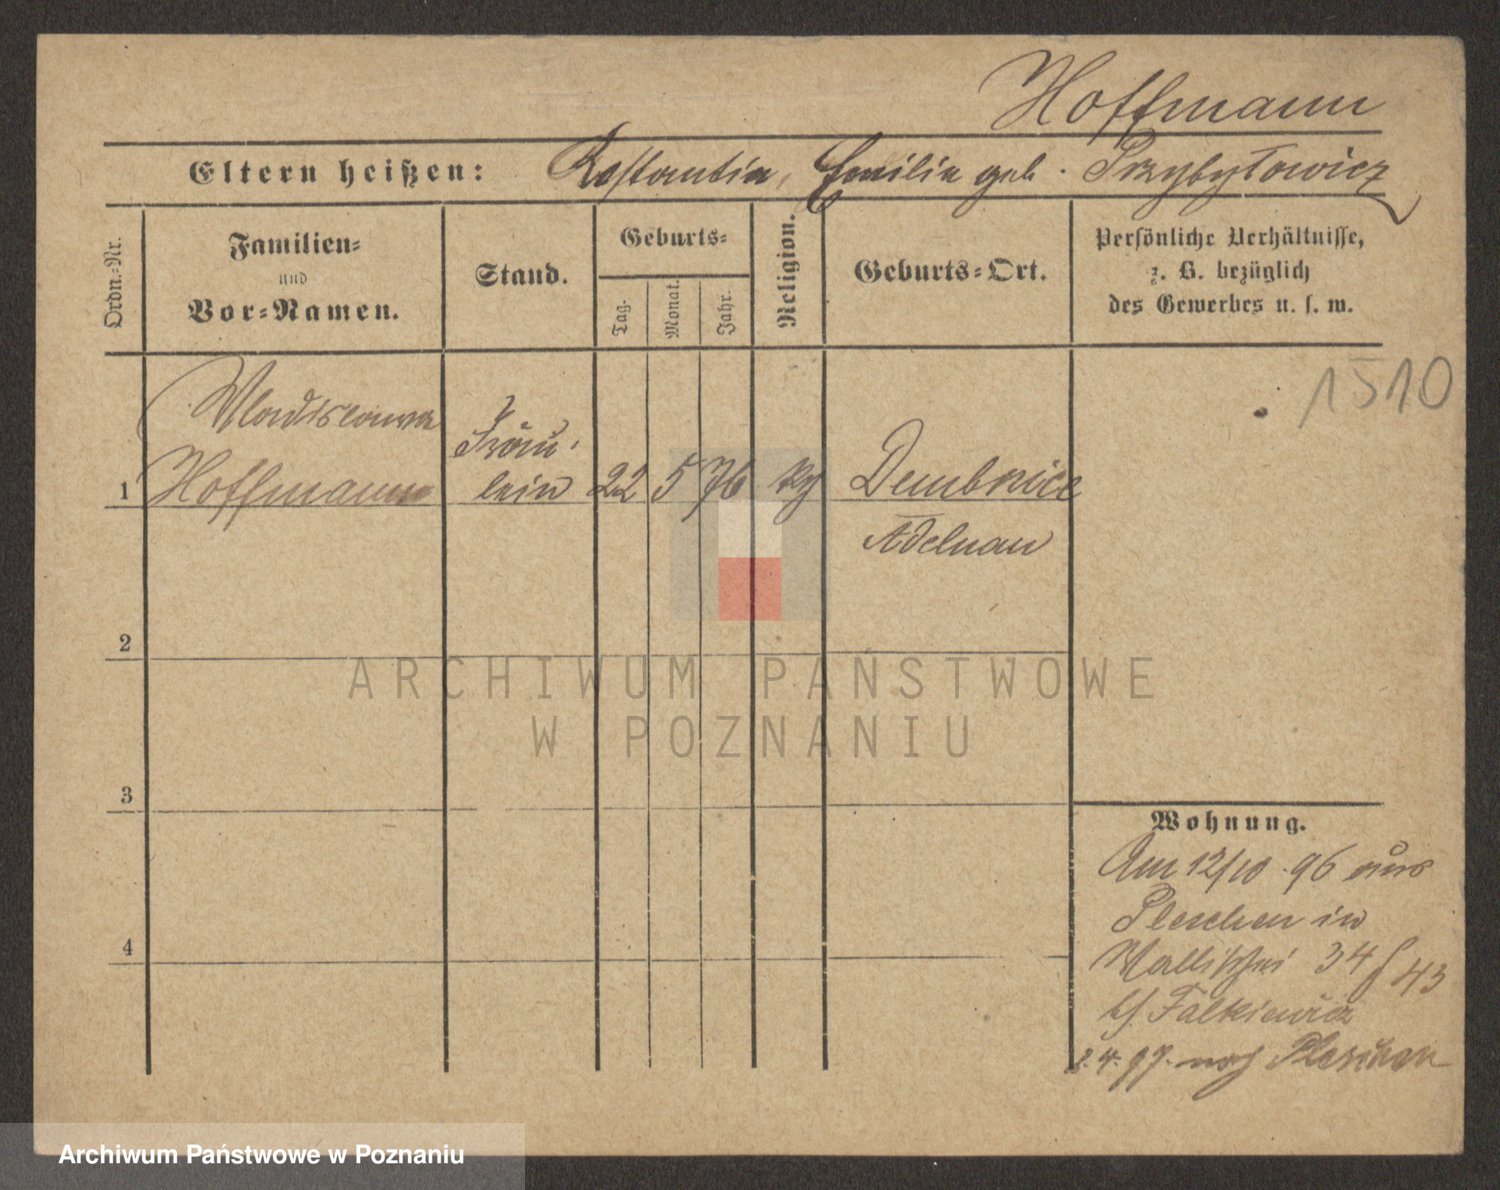 Hoffmann
Eltern heißen: Kostantin, Emilia geb. Przybyłowicz
Ordn.-Nr.
Familien-
und
Vor-Namen.
Stand.
Geburts-
Tag.
Monat.
Jahr.
Religion.
Geburts-Ort.
Persönliche Verhältnisse,
z. B. bezüglich
des Gewerbes u. s. w.
1510
Wladislawa
Hoffmann
Fräu-
lein
1
22
5
76
Adelnau
2
3
4
Wohnung.
Am 12/10 96 aus
Pleschen in
Wallischei 34/43
b/ Falkiewicz
2.4.97. nach Pleschen
ARCHIWUM PAŃSTWOWE
W POZNANIU
Archiwum Państwowe w Poznaniu